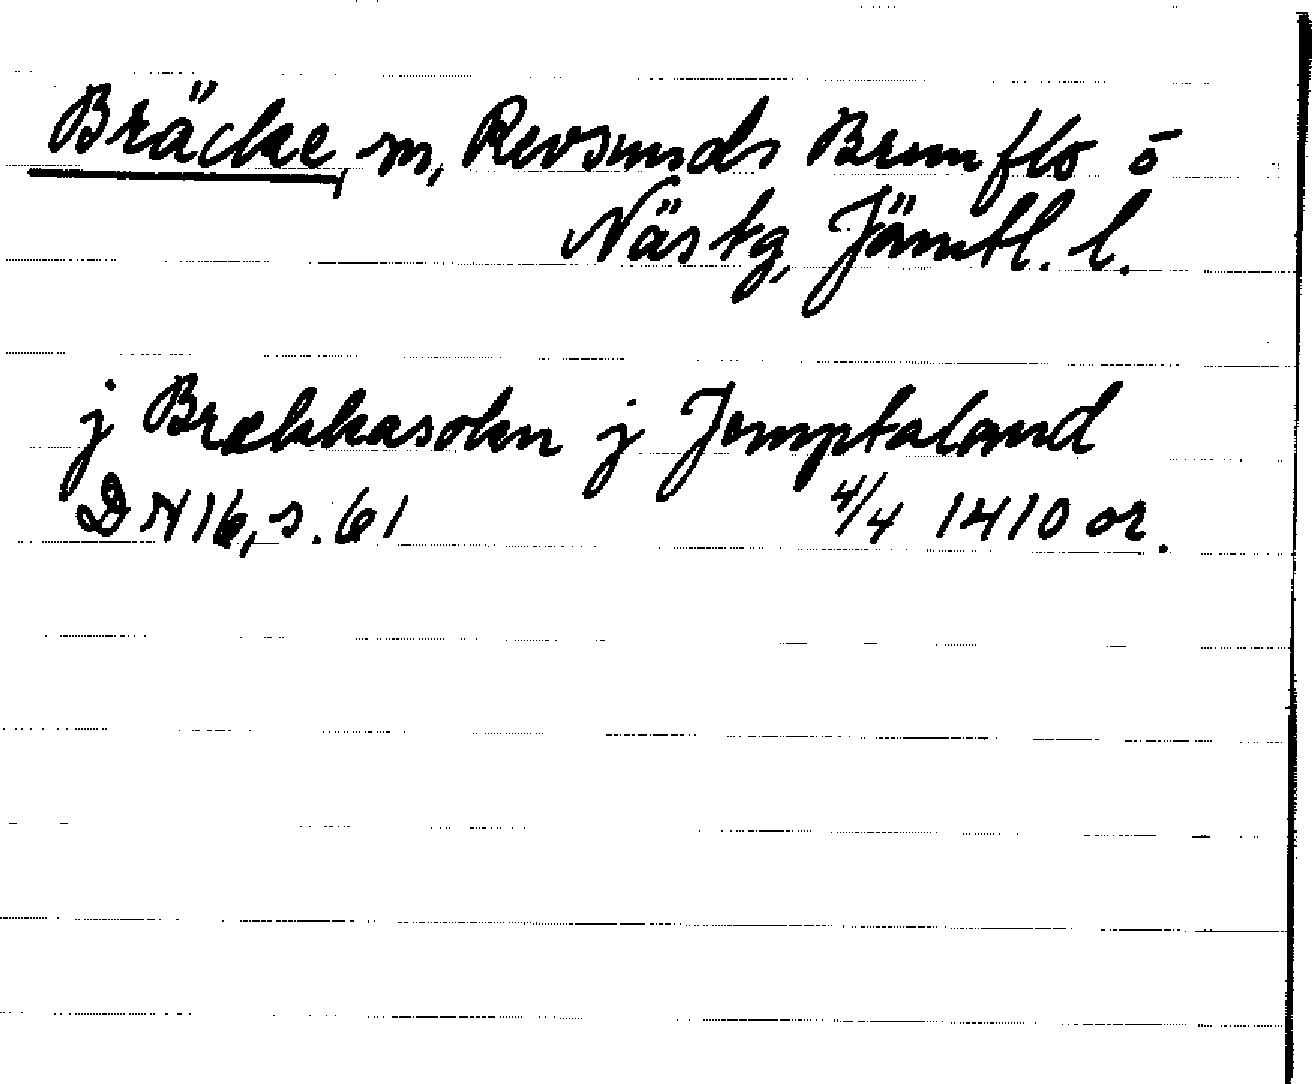 Bräcke, sn, Revsunds Brunflo o
Näs tg, Jämtl. l.
j Brækkasokn j Jemptaland
DN 16, s. 61 4/4 1410 or.